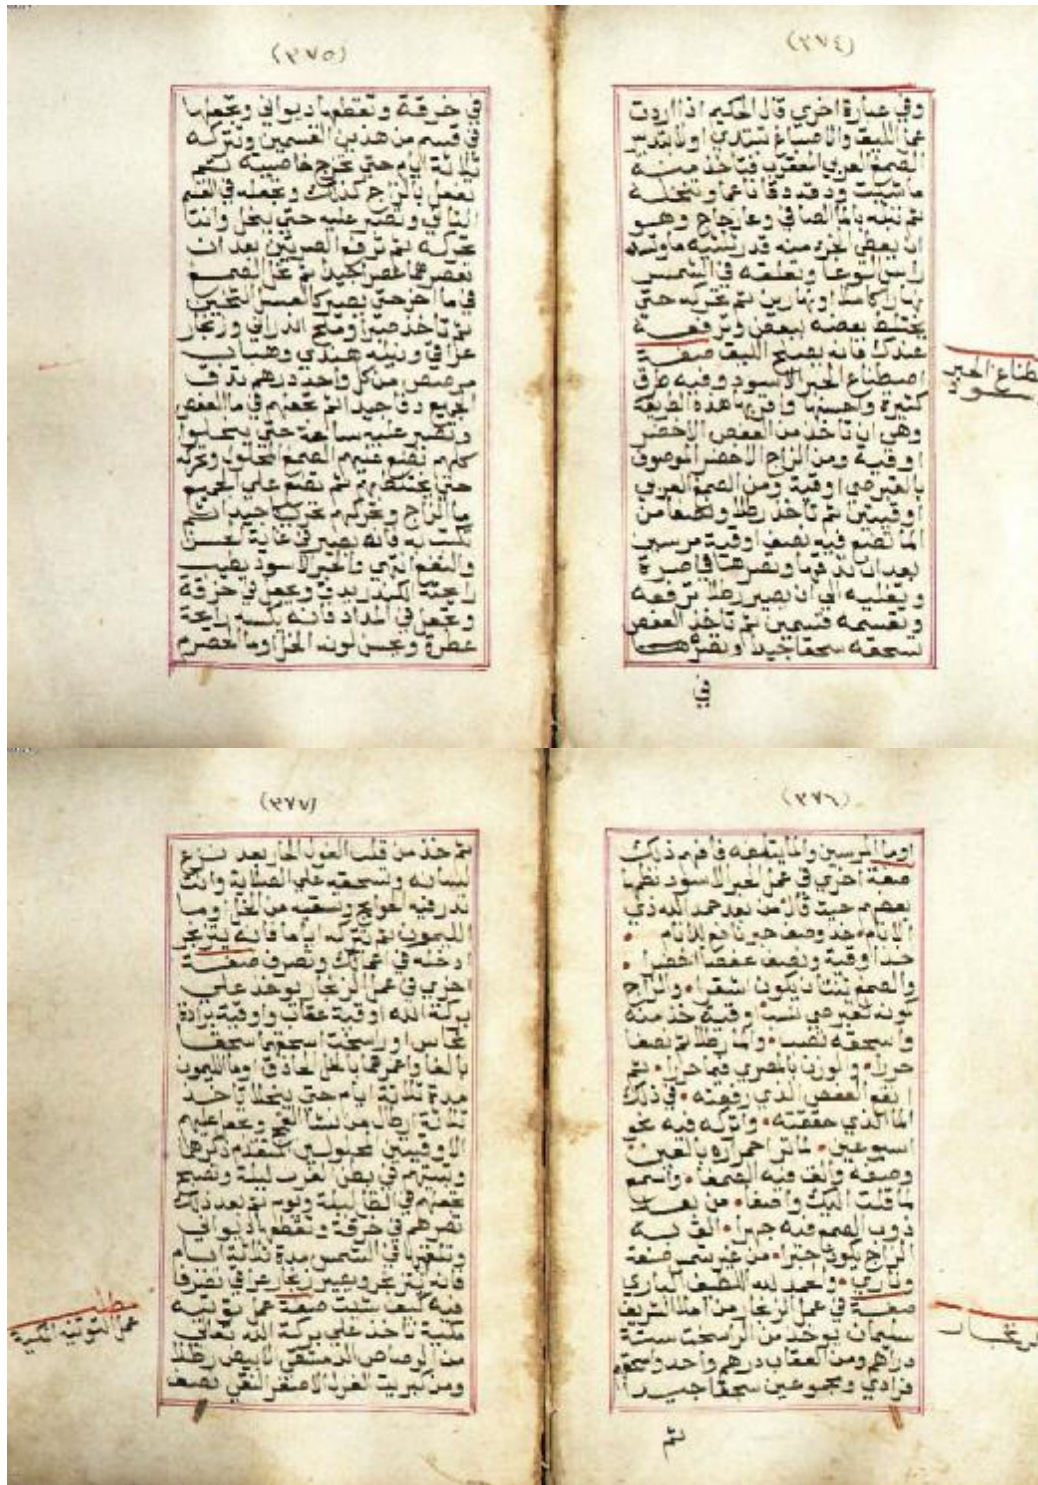 (٣٧٤)
وفي عبارة اخري قال الحكيم اذا اردت
عمل الليق والاصباغ تبتدي اولا بتدبير
الصمغ العربي المعقرب فتاخذ منه
ما شيت ودقه دقا ناعما وتنخله
ثم تبله بالما الصافي وعا زجاج وهو
ان بعض الجزء منه قدر تسقيه ما وتسد
راس الوعا وتعلقه في الشمس
نهار كاملا او نهارين ثم تحركه حتي
يختلط بعضه ببعض وترفعه
عندك فانه يصلح لليق صفة
اصطناع الحبر الاسود وفيه طرق
كثيرة واحسنها واقربها هذه الطريقة
وهي ان تاخذ من العفص الاخضر
اوقية ومن الزاج الاخضر الموصوف
بالقبرصي اوقية ومن الصمغ العربي
اوقيتين ثم تاخذ رطلا ونصفا من
الما تضع فيه نصف اوقية مرسين
بعد ان تدقها وتصرها في صرة
وتغليه الي ان يصير رطلا ترفعه
وتقسمه قسمين ثم تاخذ العفص
تسحقه سحقا جيدا وتصرها
في
طناع الحبر
سود
(٣٧٥)
في خرقة وتقطها ديواني وتجعلها
في قسم من هذين القسمين وتتركه
ثلاثة ايام حتي تخرج خاصيته ثم
تفعل بالزاج كذلك وتجعله في القسم
الثاني وتصبر عليه حتي ينحل وانت
تحركه ثم ترفع الصرتين بعد ان
تعصرهما عصرا جيدا ثم تحل الصمغ
في ما اخر حتي يصير كالعسل الثخين
ثم تاخذ صبرا وملح اندراني وزنجار
عراقي ونيله هندي وهباب
من كل واحد درهم تدق
الجميع دقا جيدا ثم تجعلهم في ما العفص
وتصبر عليه ساعة حتي ينحلوا
كلهم تضع عليهم الصمغ المحلول وتحركه
حتي يختلط ثم تضع علي الجميع
ما الزاج وتحركهم تحريكا جيدا ثم
تكتب به فانه يصير في غاية الحسن
والنفع انتهي والحبر الاسود يطيب
رايحته الكندر يدق ويجعل في خرقة
وتجعل في المداد فانه يكسبه رايحة
عطرة ويحسن لونه الخل وما الحصرم
(٣٧٦)
وما المرسين والما ينقعه فافهم ذلك
صفة اخري في عمل الحبر الاسود نظمها
بعضهم حيث قال من بعد حمد الله ذي
الانام خذ وصف حبر نافع للانام
خذ اوقية ونصف عفصا اخضرا
والصمغ يكون اشقرا والزاج
كونه قبرصي اوقية خذ منه
واسحقه والما رطلا ثم نصفا
حررا والوزن بالمصري فيما حررا ثم
انقع العفص الذي رفعته في ذلك
الما الذي حققته واتركه فيه نحو
اسبوعين لما تر احمراره بالعين
وصفه والق فيه الصمغا واسمع
لما قلت اليك واصغا من بعد
ذوب الصمغ فيه جهرا الق به
الزاج يكون حبرا من غير شمس صنعة
وناري والحمد لله اللطيف الباري
صفة في عمل الزنجار من املا الشريف
سليمان يوخذ من الراسخت ستة
دراهم ومن العقاب درهم واحد واسحقهم
فرادي ومجموعين سحقا جيدا
ثم
(٣٧٧)
ثم خذ من قلب الفول الحار بعد نزع
لسانه وتسحقه علي الصلاية وانت
تدر فيه الحوايج وتسقيه من الخل وما
الليمون ثم تتركه اياما فانه يتزنجر
ادخله في اعمالك وتصرف صفة
اخري في عمل الزنجار يوخذ علي
بركة الله اوقية عقاب واوقية برادة
نحاس او راسخت اسحقهم سحقا
بالغا واغمرهما بالخل الحاذق او ما الليمون
مدة ثلاثة ايام حتي ينحلا تاخذ
ثلاثة ارطال من نشا القمح وتجعل عليهم
الاوقيتين المحلولين المتقدم ذكرهما
وتبيتهم في بطن ليلة وتصبح
تجعلهم في الظل ليلة ويوم ثم بعد ذلك
تصرهم في خرقة وتقطها ديواني
وتعلقها في الشمس مدة ثلاثة ايام
فانه يتزنجر ويصير زنجار عراقي تصرف
فيه كيف شئت صفة عمل توتيه
مكية تاخذ علي بركة الله تعالي
من الرصاص الدمشقي الابيض رطلا
ومن كبريت الاصفر النقي نصف
مطلب
عمل التوتيه المكية